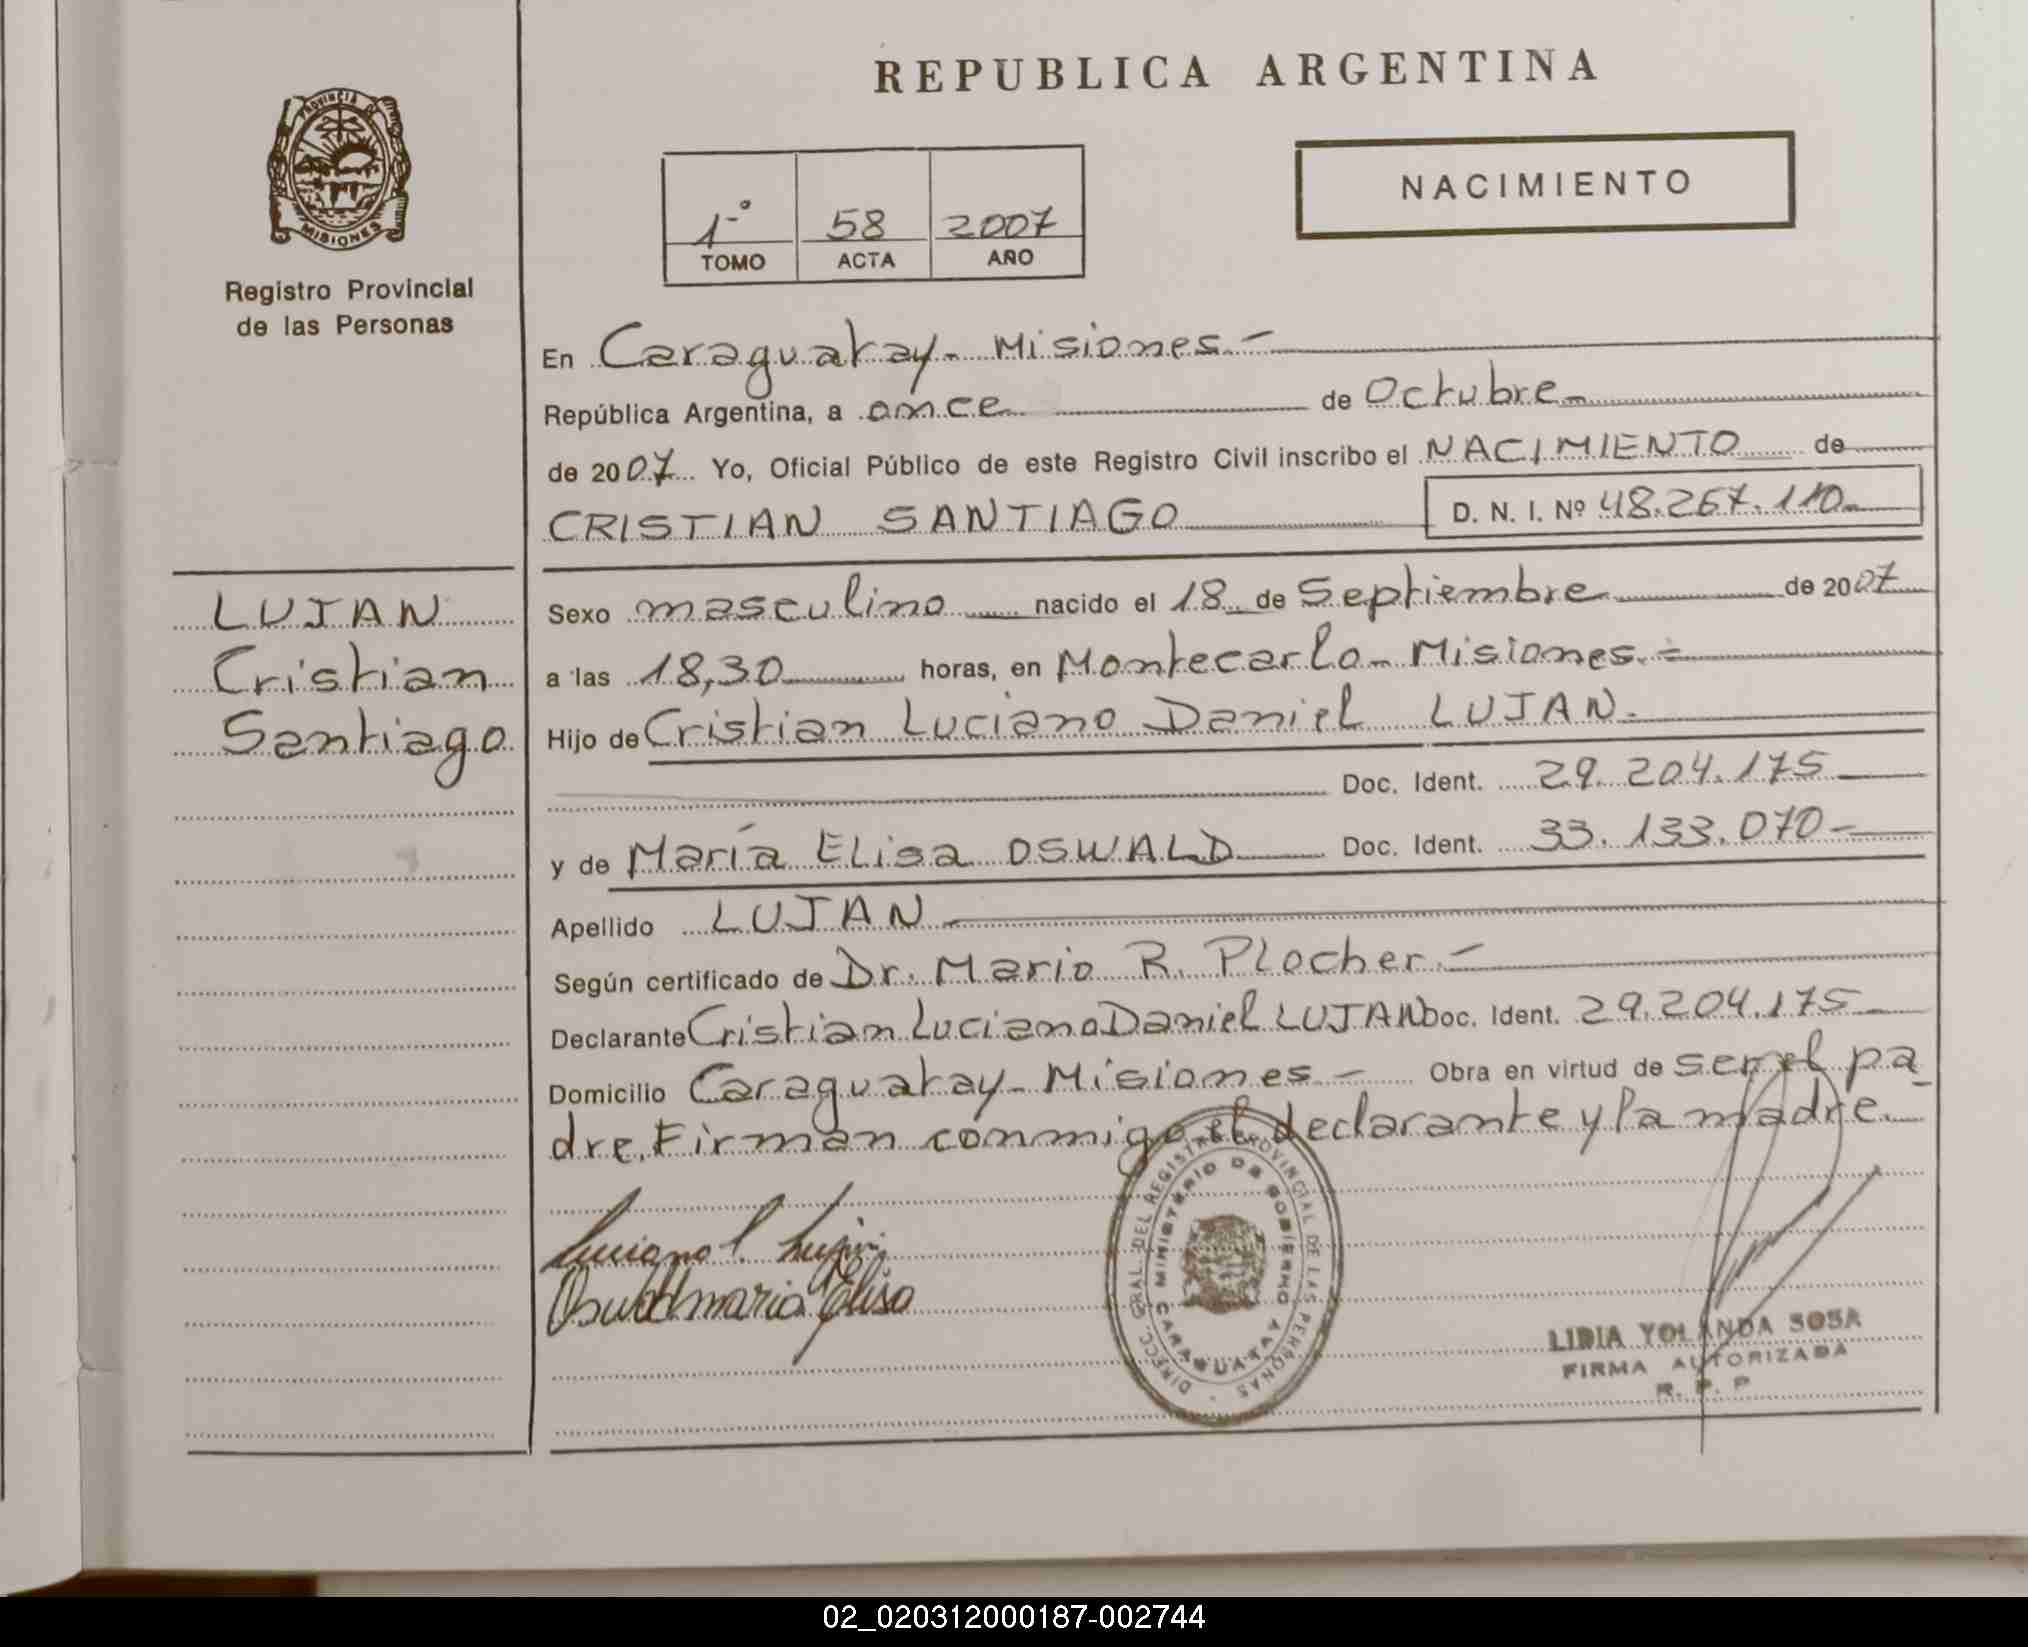 REPUBLICA ARGENTINA
PROVINCIA DE
MISIONES
Registro Provincial
de las Personas
NACIMIENTO
1º 58 2007
TOMO ACTA AÑO
En Caraguatay - Misiones.-
República Argentina, a once de Octubre.-
de 2007. Yo, Oficial Público de este Registro Civil inscribo el NACIMIENTO de
CRISTIAN SANTIAGO D. N. I. Nº 48.267.110-
LUJAN
Cristian
Santiago
Sexo masculino nacido el 18 de Septiembre de 2007
a las 18,30 horas, en Montecarlo - Misiones.-
Hijo de Cristian Luciano Daniel LUJAN.
Doc. Ident. 29.204.175
y de María Elisa OSWALD Doc. Ident. 33.133.070-
Apellido LUJAN
Según certificado de Dr. Mario R. Plocher.-
Declarante Cristian Luciano Daniel LUJAN Doc. Ident. 29.204.175
Domicilio Caraguatay - Misiones - Obra en virtud de ser el pa-
dre. Firman conmigo el declarante y la madre.
DIRECC. GRAL. DEL REGISTRO PROVINCIAL DE LAS PERSONAS
MINISTERIO DE GOBIERNO
CARAGUATAY
Luciano Lujan
Oswald maria Elisa
LIDIA YOLANDA SOSA
FIRMA AUTORIZADA
R. P. P
02_020312000187-002744